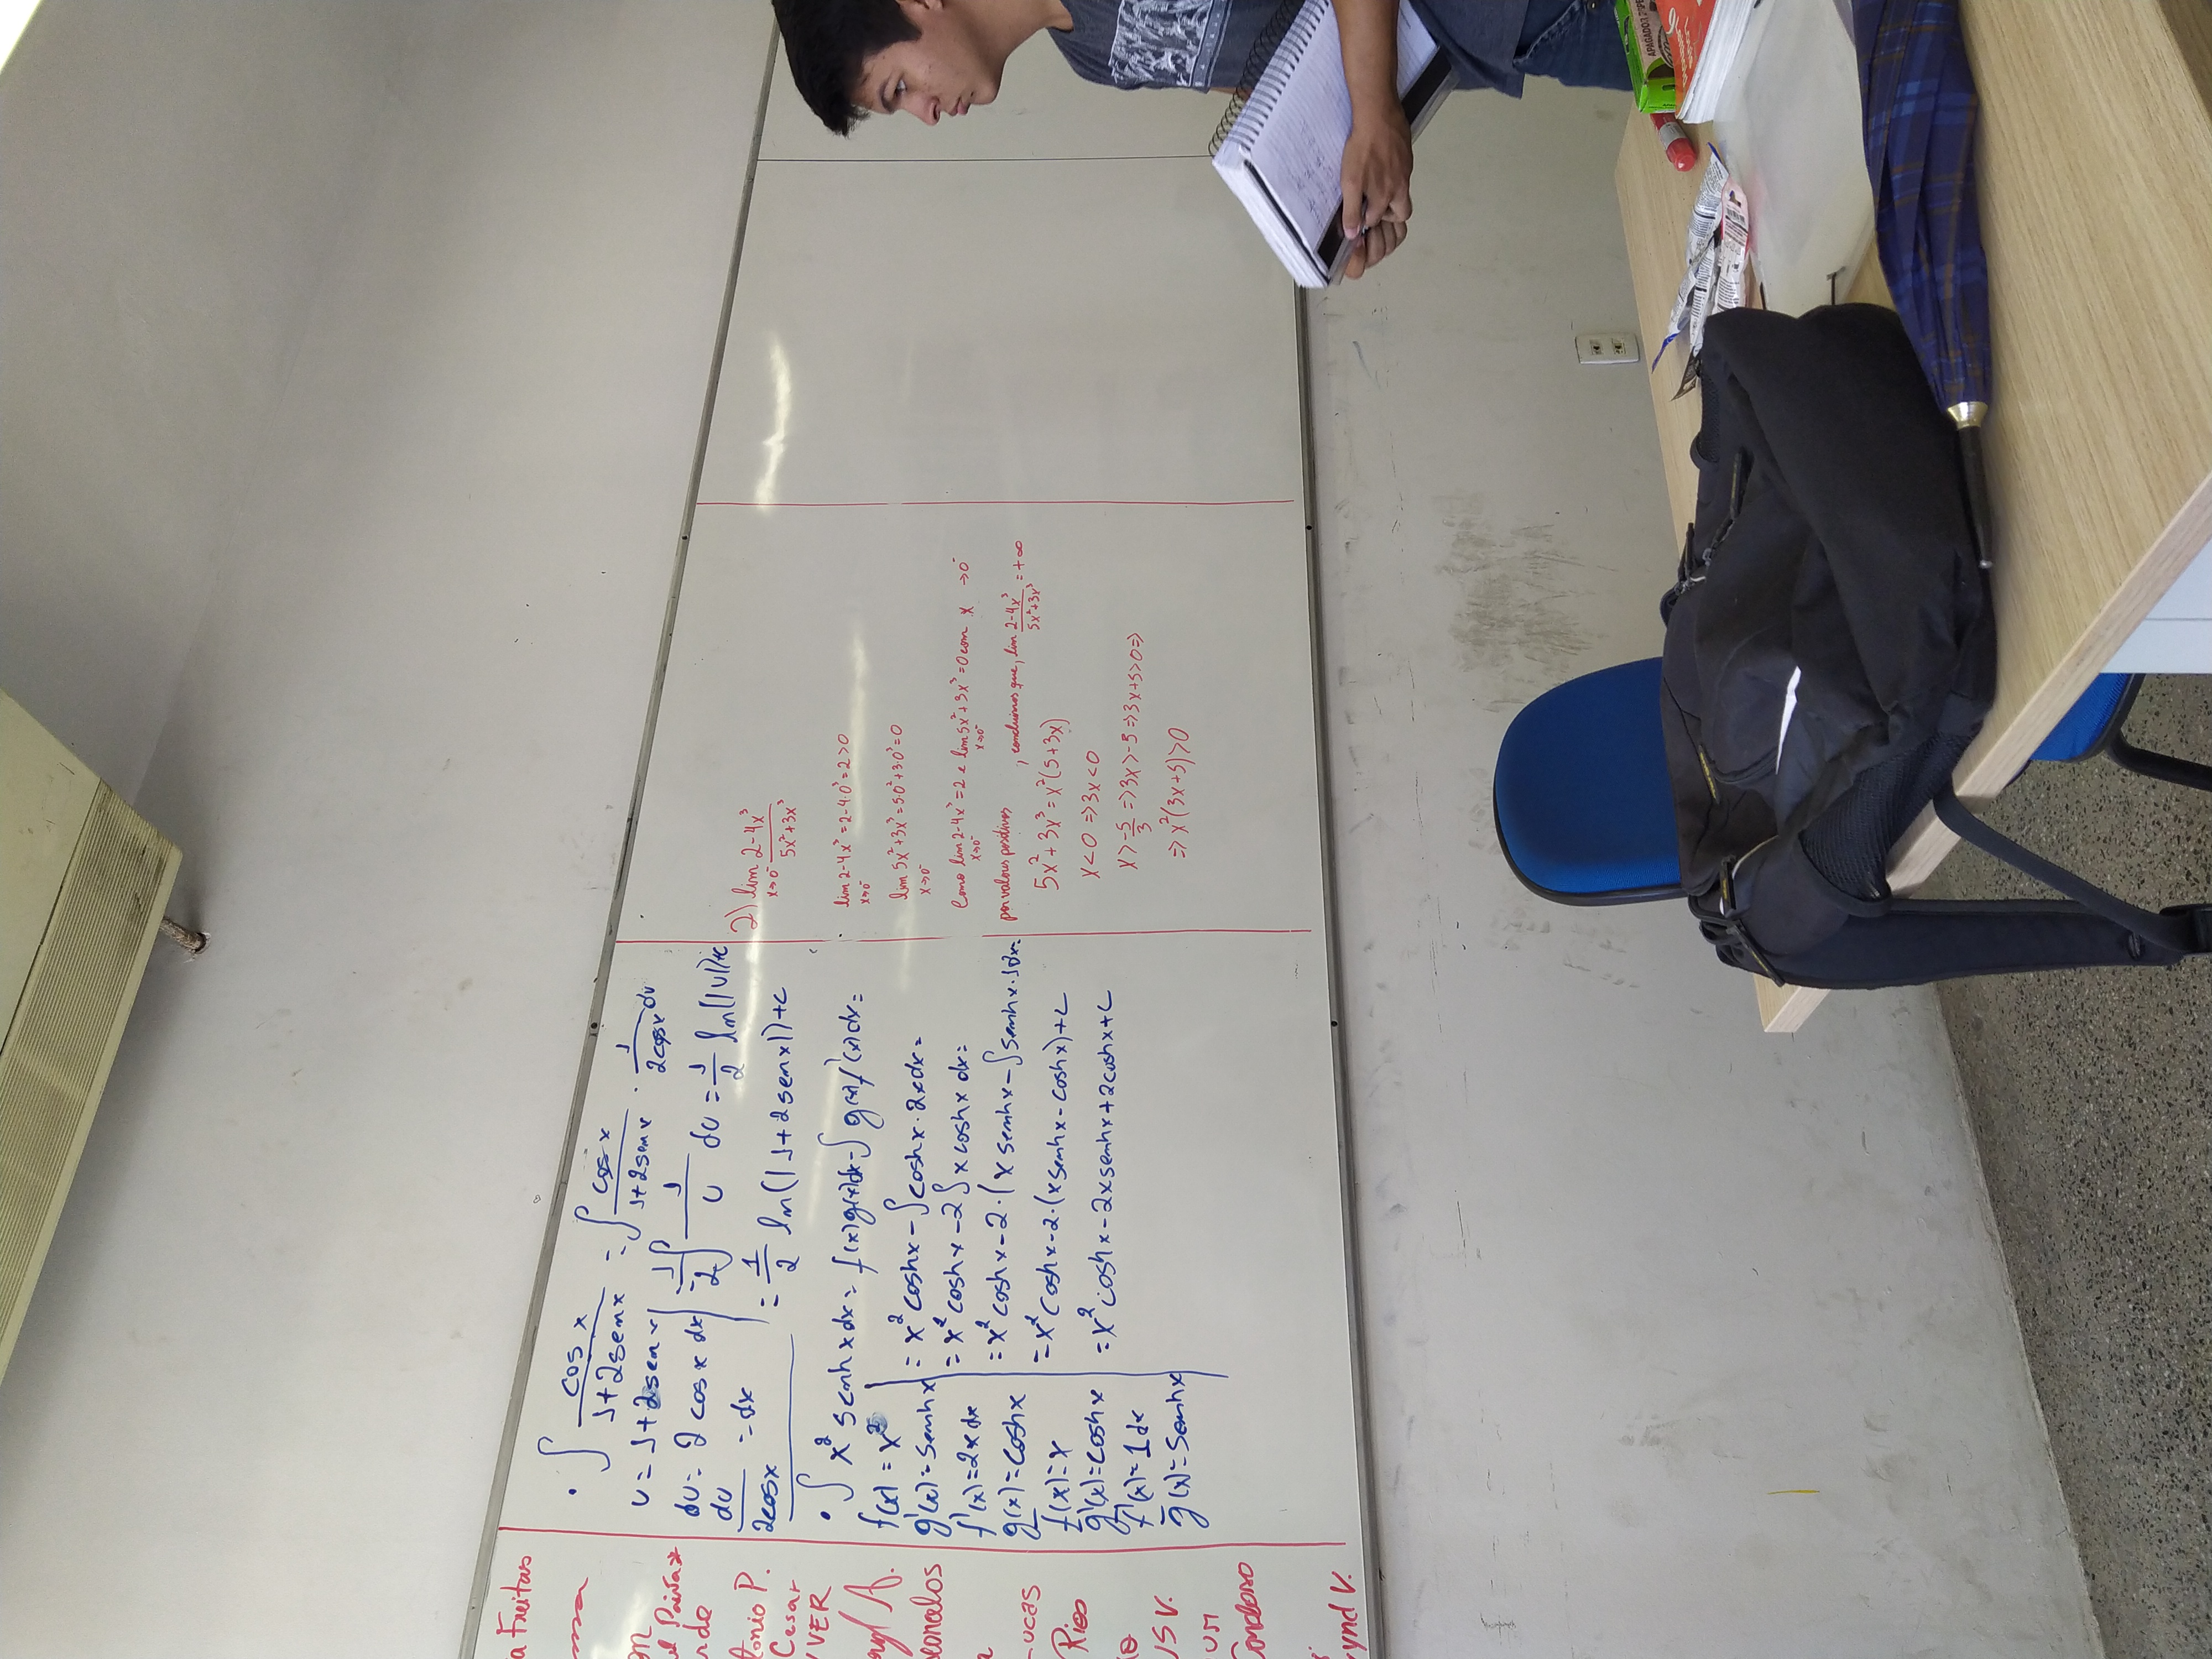 a Freitas
on
Paiva*
tonio P.
Cesar
VVER
A.
Lucas
Rios
US V.
um
Cardoso
ynd V.
• ∫ cos x / 1+2senx = ∫ cos x / 1+2sen x · 1 / 2cosx du
u = 1+2sen x
du = 2 cos x dx
du / 2cosx = dx
= 1/2 ∫ 1/u du = 1/2 ln(|u|)+c
= 1/2 ln(|1+2senx|)+c
• ∫ x² senhx dx = f(x)g(x)dx - ∫ g(x)f'(x)dx =
f(x) = x²
g'(x) = senhx
f'(x) = 2x dx
g(x) = coshx
f(x) = x
g'(x) = coshx
f'(x) = 1 dx
g(x) = senhx
= x² coshx - ∫ coshx · 2xdx =
= x² coshx - 2 ∫ x coshx dx =
= x² coshx - 2 · (x senhx - ∫ senhx · 1 dx =
= x² coshx - 2 · (x senhx - coshx) + c
= x² coshx - 2x senhx + 2coshx + c
2) lim x→0⁻ 2-4x³ / 5x²+3x³
lim x→0⁻ 2-4x³ = 2-4·0³ = 2 > 0
lim x→0⁻ 5x²+3x³ = 5·0²+3·0³ = 0
Como lim x→0⁻ 2-4x³ = 2 e lim x→0⁻ 5x²+3x³ = 0 com x → 0⁻
por valores positivos , concluimos que, lim x→0⁻ 2-4x³ / 5x²+3x³ = +∞
5x²+3x³ = x²(5+3x)
x<0 ⇒ 3x<0
x > -5/3 ⇒ 3x > -5 ⇒ 3x+5>0 ⇒
⇒ x²(3x+5)>0
APAGADOR
Louis